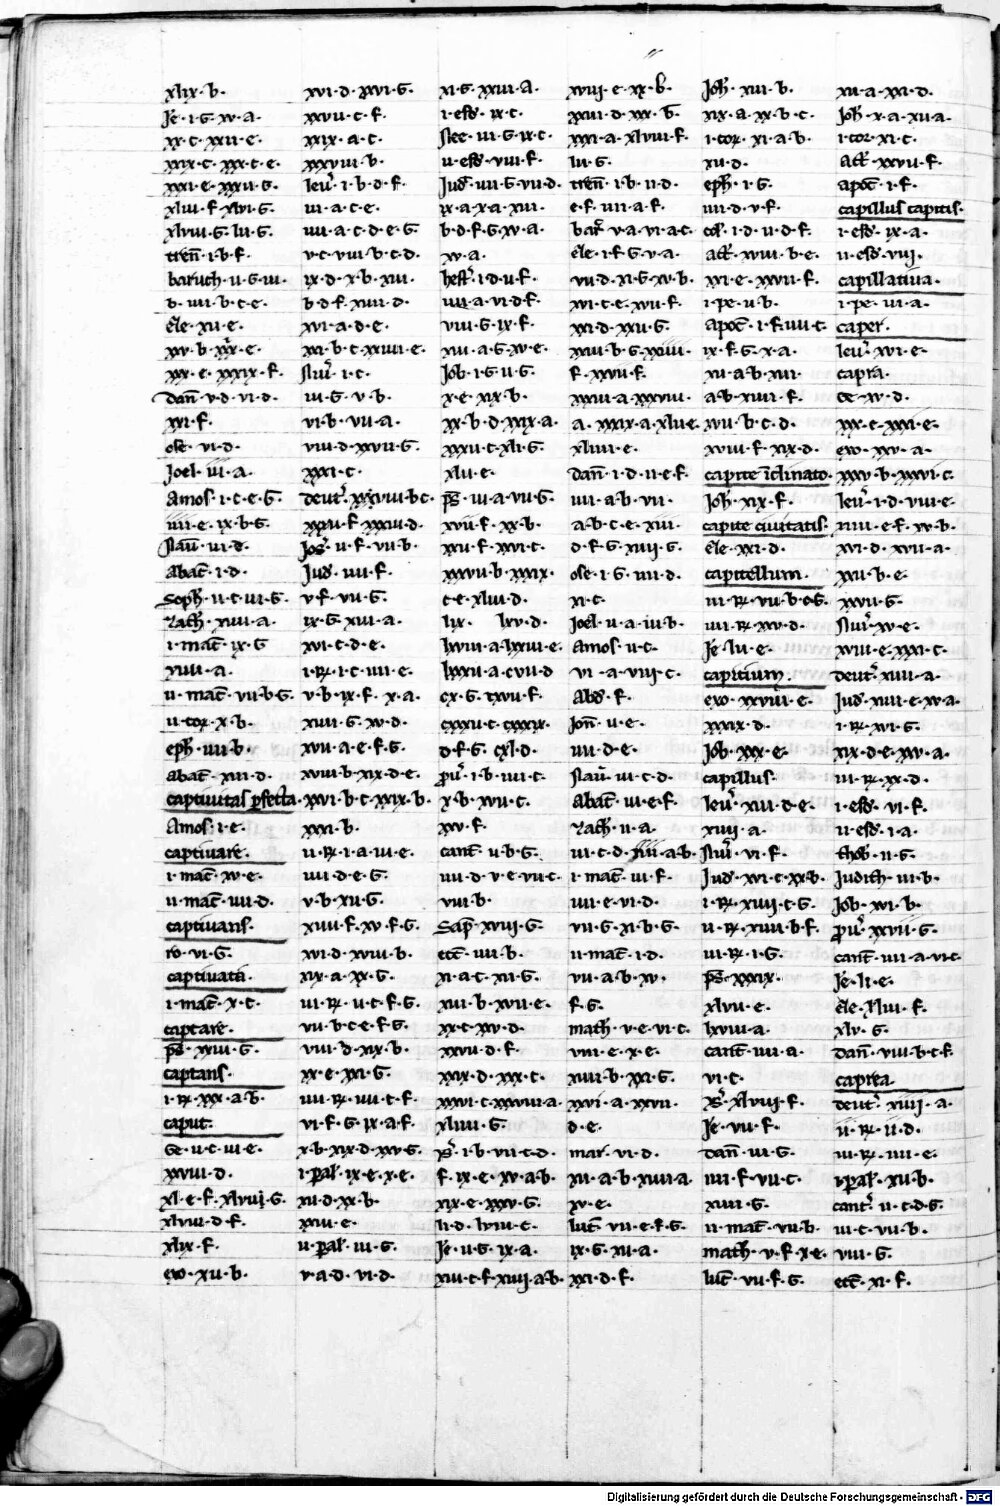 xlix · b ·
Je · i · G · xv · a ·
xx · c · xxii · e ·
xxix · c · xxx · c · e ·
xxxi · e · xxxii · G ·
xliii · f · xlvi · G ·
xlviii · G · lii · G ·
tren̄ · i · b · f ·
baruch · ii · G · iii ·
b · iiii · b · c · e ·
eze · xii · e ·
xx · e · xxxix · f ·
dan̄ · v · d · vi · d ·
xxi · f ·
ose · vi · d ·
Joel · iii · a ·
Amos · i · c · e · G ·
iiii · e · ix · b · G ·
Naū · iii · d ·
Abac̄ · i · d ·
Soph̄ · ii · c · iii · G ·
Zach̄ · xiiii · a ·
i · mac̄ · ix · G
xiiii · a ·
ii · mac̄ · vii · b · G ·
ii · cor · x · b ·
eph̄ · iiii · b ·
abac̄ · xiii · d ·
captivitas perfecta ·
Amos · i · e ·
captivare ·
i · mac̄ · xv · e ·
ii · mac̄ · iiii · d ·
captivans ·
ro · vi · G ·
captivata ·
i · mac̄ · x · c ·
captare ·
ps̄ · xxiii · G ·
captans ·
i · R · xxx · a · b ·
caput ·
Ge · ii · c · iii · e ·
xxviii · d ·
xl · e · f · xlviii · G ·
xlviii · d · f ·
xlix · f ·
exo · xii · b ·
xvi · d · xxvi · G ·
xxvii · c · f ·
xxix · a · c ·
xxxviii · b ·
leū · i · b · d · f ·
iii · a · c · e ·
iiii · a · c · d · e · G ·
v · c · viii · b · c · d ·
ix · d · x · b · xiii ·
b · d · f · xiiii · d ·
xvi · a · d · e ·
xxi · b · c · xxiiii · e ·
Nū · i · c ·
iii · G · v · b ·
vi · b · vii · a ·
viii · d · xxvii · G ·
xxxi · c ·
deut̄ · xxxviii · b · c ·
xxxii · f · xxxiii · d ·
Jos̄ · ii · f · vii · b ·
Jud̄ · iiii · f ·
v · f · vii · G ·
ix · G · xiii · a ·
xvi · c · d · e ·
i · R · i · c · iiii · e ·
v · b · ix · f · x · a ·
xiii · G · xv · d ·
xvii · a · e · f · G ·
xviii · b · xix · d · e ·
xxvi · b · c · xxix · b ·
xxxi · b ·
ii · R · i · a · iii · e ·
iiii · d · e · G ·
v · b · xii · G ·
xiiii · f · xv · f · G ·
xvi · d · xviii · b ·
xix · a · xx · G ·
iii · R · ii · c · f · G ·
vii · b · c · e · f · G ·
viii · d · xix · b ·
xx · e · xxi · G ·
iiii · R · iiii · c · f ·
vi · f · G · ix · a · f ·
x · b · xix · d · xxv · G ·
i · pal · ix · e · x · e ·
xii · d · xx · b ·
xxiii · e ·
ii · pal · iii · G ·
v · a · d · vi · d ·
xi · G · xxiii · a ·
i · esd̄ · ix · c ·
Nee · iii · G · ix · c ·
ii · esd̄ · viii · f ·
Jud̄ · iiii · G · vii · d ·
ix · a · x · a · xiii ·
b · d · f · G · xv · a ·
xv · a ·
hest̄ · i · d · ii · f ·
iiii · a · vi · d · f ·
viii · G · ix · f ·
xiii · a · G · xv · e ·
Job · i · G · ii · G ·
x · e · xix · b ·
xx · b · d · xxix · a ·
xxxii · c · xli · G ·
xlii · e ·
ps̄ · iii · a · vii · G ·
xvii · f · xx · b ·
xxii · f · xxvi · c ·
xxxvii · b · xxxix ·
c · e · xliii · d ·
lix · lxv · d ·
lxviii · a · lxxiii · e ·
lxxxii · a · cvii · d
cx · G · cxvii · f ·
cxxxii · c · cxxxix ·
d · f · G · cxl · d ·
pū · i · b · iiii · c ·
x · b · xvii · c ·
xxv · f ·
cant̄ · ii · b · G ·
iiii · d · v · e · vii · c ·
viii · b ·
Sap̄ · xviii · G ·
ecc̄ · iiii · b ·
xi · a · c · xii · G ·
xiii · b · xvii · e ·
xx · c · xxv · d ·
xxvii · d · f ·
xxix · d · xxx · c ·
xxxvi · c · xxxviii · a ·
xliiii · G ·
ys̄ · i · b · vii · c · d ·
f · ix · e · xv · a · b ·
xix · e · xxxv · G ·
li · d · lviii · c ·
Je · ii · G · ix · a ·
xiii · c · f · xiiii · a · b ·
xviii · e · xx · b ·
xxiii · d · xxx · b ·
xxxi · a · xlviii · f ·
lii · G ·
tren̄ · i · b · ii · d ·
e · f · iiii · a · f ·
bar̄ · v · a · vi · a · c ·
eze · i · f · G · v · a ·
vii · d · xi · G · xv · b ·
xvi · c · e · xvii · f ·
xxi · d · xxii · G ·
xxiii · b · G · xxiiii ·
f · xxvii · f ·
xxxii · a · xxxviii ·
a · xxxix · a · xlii · e ·
xliiii · e ·
dan̄ · i · d · ii · e · f ·
iiii · a · b · vii ·
a · b · c · e · xiii ·
d · f · G · xiiii · G ·
ose · i · G · iiii · d ·
xi · c ·
Joel · ii · a · iii · b ·
Amos · ii · c ·
vi · a · viii · c ·
Abd̄ · f ·
Jon̄ · ii · e ·
iiii · d · e ·
Naū · iii · c · d ·
Abac̄ · iii · e · f ·
Zach̄ · ii · a ·
iii · c · d · iiii · a · b ·
i · mac̄ · iii · f ·
iiii · e · vi · d ·
vii · G · xi · b · G ·
ii · mac̄ · i · d ·
vii · a · b · xv ·
f · G ·
math · v · e · vi · c ·
viii · e · x · e ·
xiiii · b · xxi · G ·
xxvi · a · xxvii ·
d · e ·
mar · vi · d ·
xii · a · b · xiiii · a ·
xv · e ·
luc̄ · vii · e · f · G ·
ix · G · xii · a ·
xxi · d · f ·
Joh̄ · xiii · b ·
xix · a · xx · b · c ·
i · cor · xi · a · b ·
xii · d ·
eph̄ · i · G ·
iiii · d · v · f ·
col · i · d · ii · d · f ·
act̄ · xviii · b · e ·
xxi · e · xxvii · f ·
i · pe · ii · b ·
Apoc̄ · i · f · iiii · c ·
ix · f · G · x · a ·
xii · a · b · xiii ·
a · b · xiiii · f ·
xvii · b · c · d ·
xviii · f · xix · d ·
capite īclinato ·
Joh̄ · xix · f ·
capite civitatis ·
eze · xxi · d ·
capitellum ·
iii · R · vii · b · e · G ·
iiii · R · xxv · d ·
Je · lii · e ·
capitium ·
exo · xxviii · e ·
xxxix · d ·
Job · xxx · e ·
capillus ·
leū · xiii · d · e ·
xiiii · a ·
Nū · vi · f ·
Jud̄ · xvi · c · xx · b ·
i · R · xiiii · c · G ·
ii · R · xiiii · b · f ·
iii · R · i · G ·
ps̄ · xxxix ·
xlvii · e ·
lxviii · a ·
cant̄ · iiii · a ·
vi · c ·
ys̄ · xlviii · f ·
Je · vii · f ·
dan̄ · iii · G ·
iiii · f · vii · c ·
xiiii · G ·
ii · mac̄ · vii · b ·
math · v · f · x · e ·
luc̄ · vii · f · G ·
xii · a · xxi · d ·
Joh̄ · x · a · xii · a ·
i · cor · xi · c ·
act̄ · xxvii · f ·
apoc̄ · i · f ·
capillus capitis ·
i · esd̄ · ix · a ·
ii · esd̄ · viii ·
capillatura ·
i · pe · iii · a ·
caper ·
leū · xvi · e ·
capra ·
Ge · xv · d ·
xxx · c · xxxi · e ·
exo · xxv · a ·
xxxv · b · xxxvi · c ·
leū · i · d · viii · e ·
xiiii · e · f · xv · b ·
xvi · d · xvii · a ·
xxii · b · e ·
xxvii · G ·
Nū · xv · e ·
xviii · e · xxxi · c ·
deut̄ · xiiii · a ·
Jud̄ · xiii · e · xv · a ·
i · R · xvi · G ·
xix · d · e · xxv · a ·
iii · R · xx · d ·
i · esd̄ · vi · f ·
ii · esd̄ · i · a ·
thob · ii · G ·
Judith · iii · b ·
Job · xvi · b ·
pū · xxvii · G ·
cant̄ · iiii · a · vi · c ·
Je · li · e ·
eze · xliii · f ·
xlv · G ·
dan̄ · viii · b · c · f ·
caprea
deut̄ · xiiii · a ·
ii · R · ii · d ·
iii · R · iiii · e ·
i · pal · xii · b ·
cant̄ · ii · c · d · G ·
iii · c · vii · b ·
viii · G ·
ecc̄ · xi · f ·
Digitalisierung gefördert durch die Deutsche Forschungsgemeinschaft - DFG